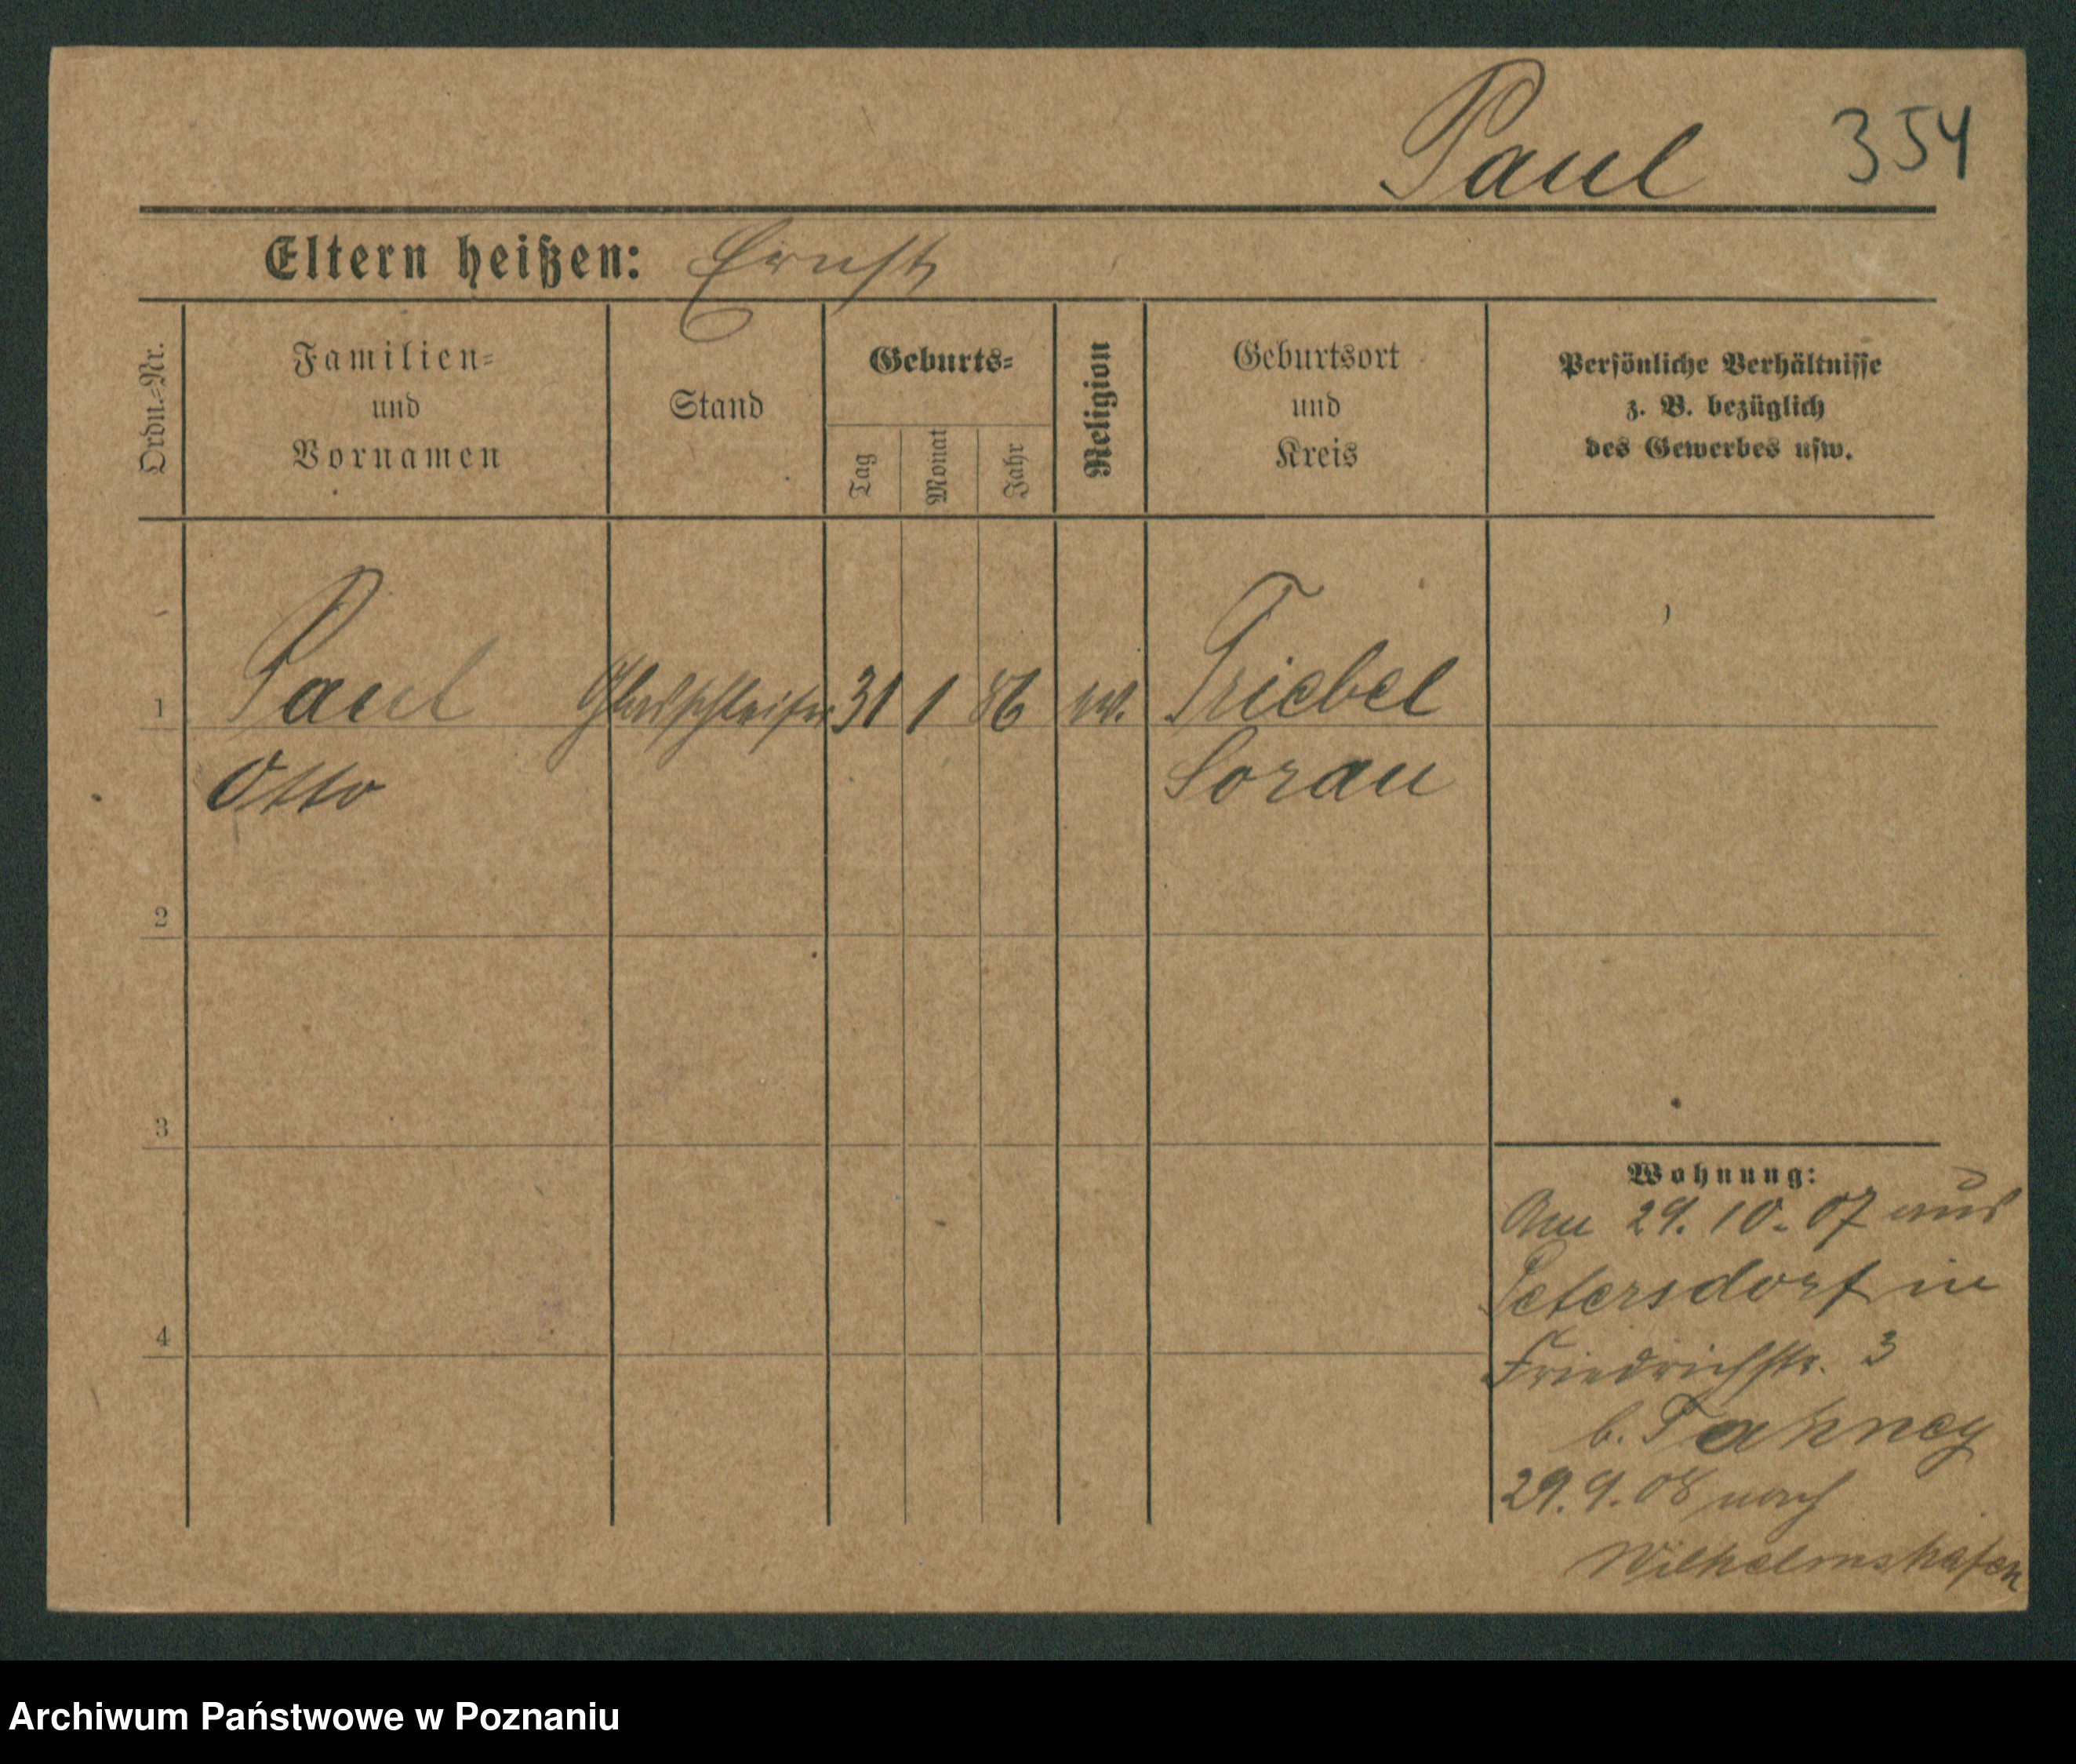 Paul 354
Eltern heißen: Ernst
Ordn.=Nr.
Familien=
und
Vornamen
Stand
Geburts=
Tag
Monat
Jahr
Religion
Geburtsort
und
Kreis
Persönliche Verhältnisse
z. B. bezüglich
des Gewerbes usw.
1 Paul Glasschleifer 31 1 86 Triebel
Otto Sorau
2
3
4
Wohnung:
Am 29. 10. 07 aus
Petersdorf in
Friedrichstr. 3
b.
29. 9. 08 nach
Wilhelmshafen
Archiwum Państwowe w Poznaniu